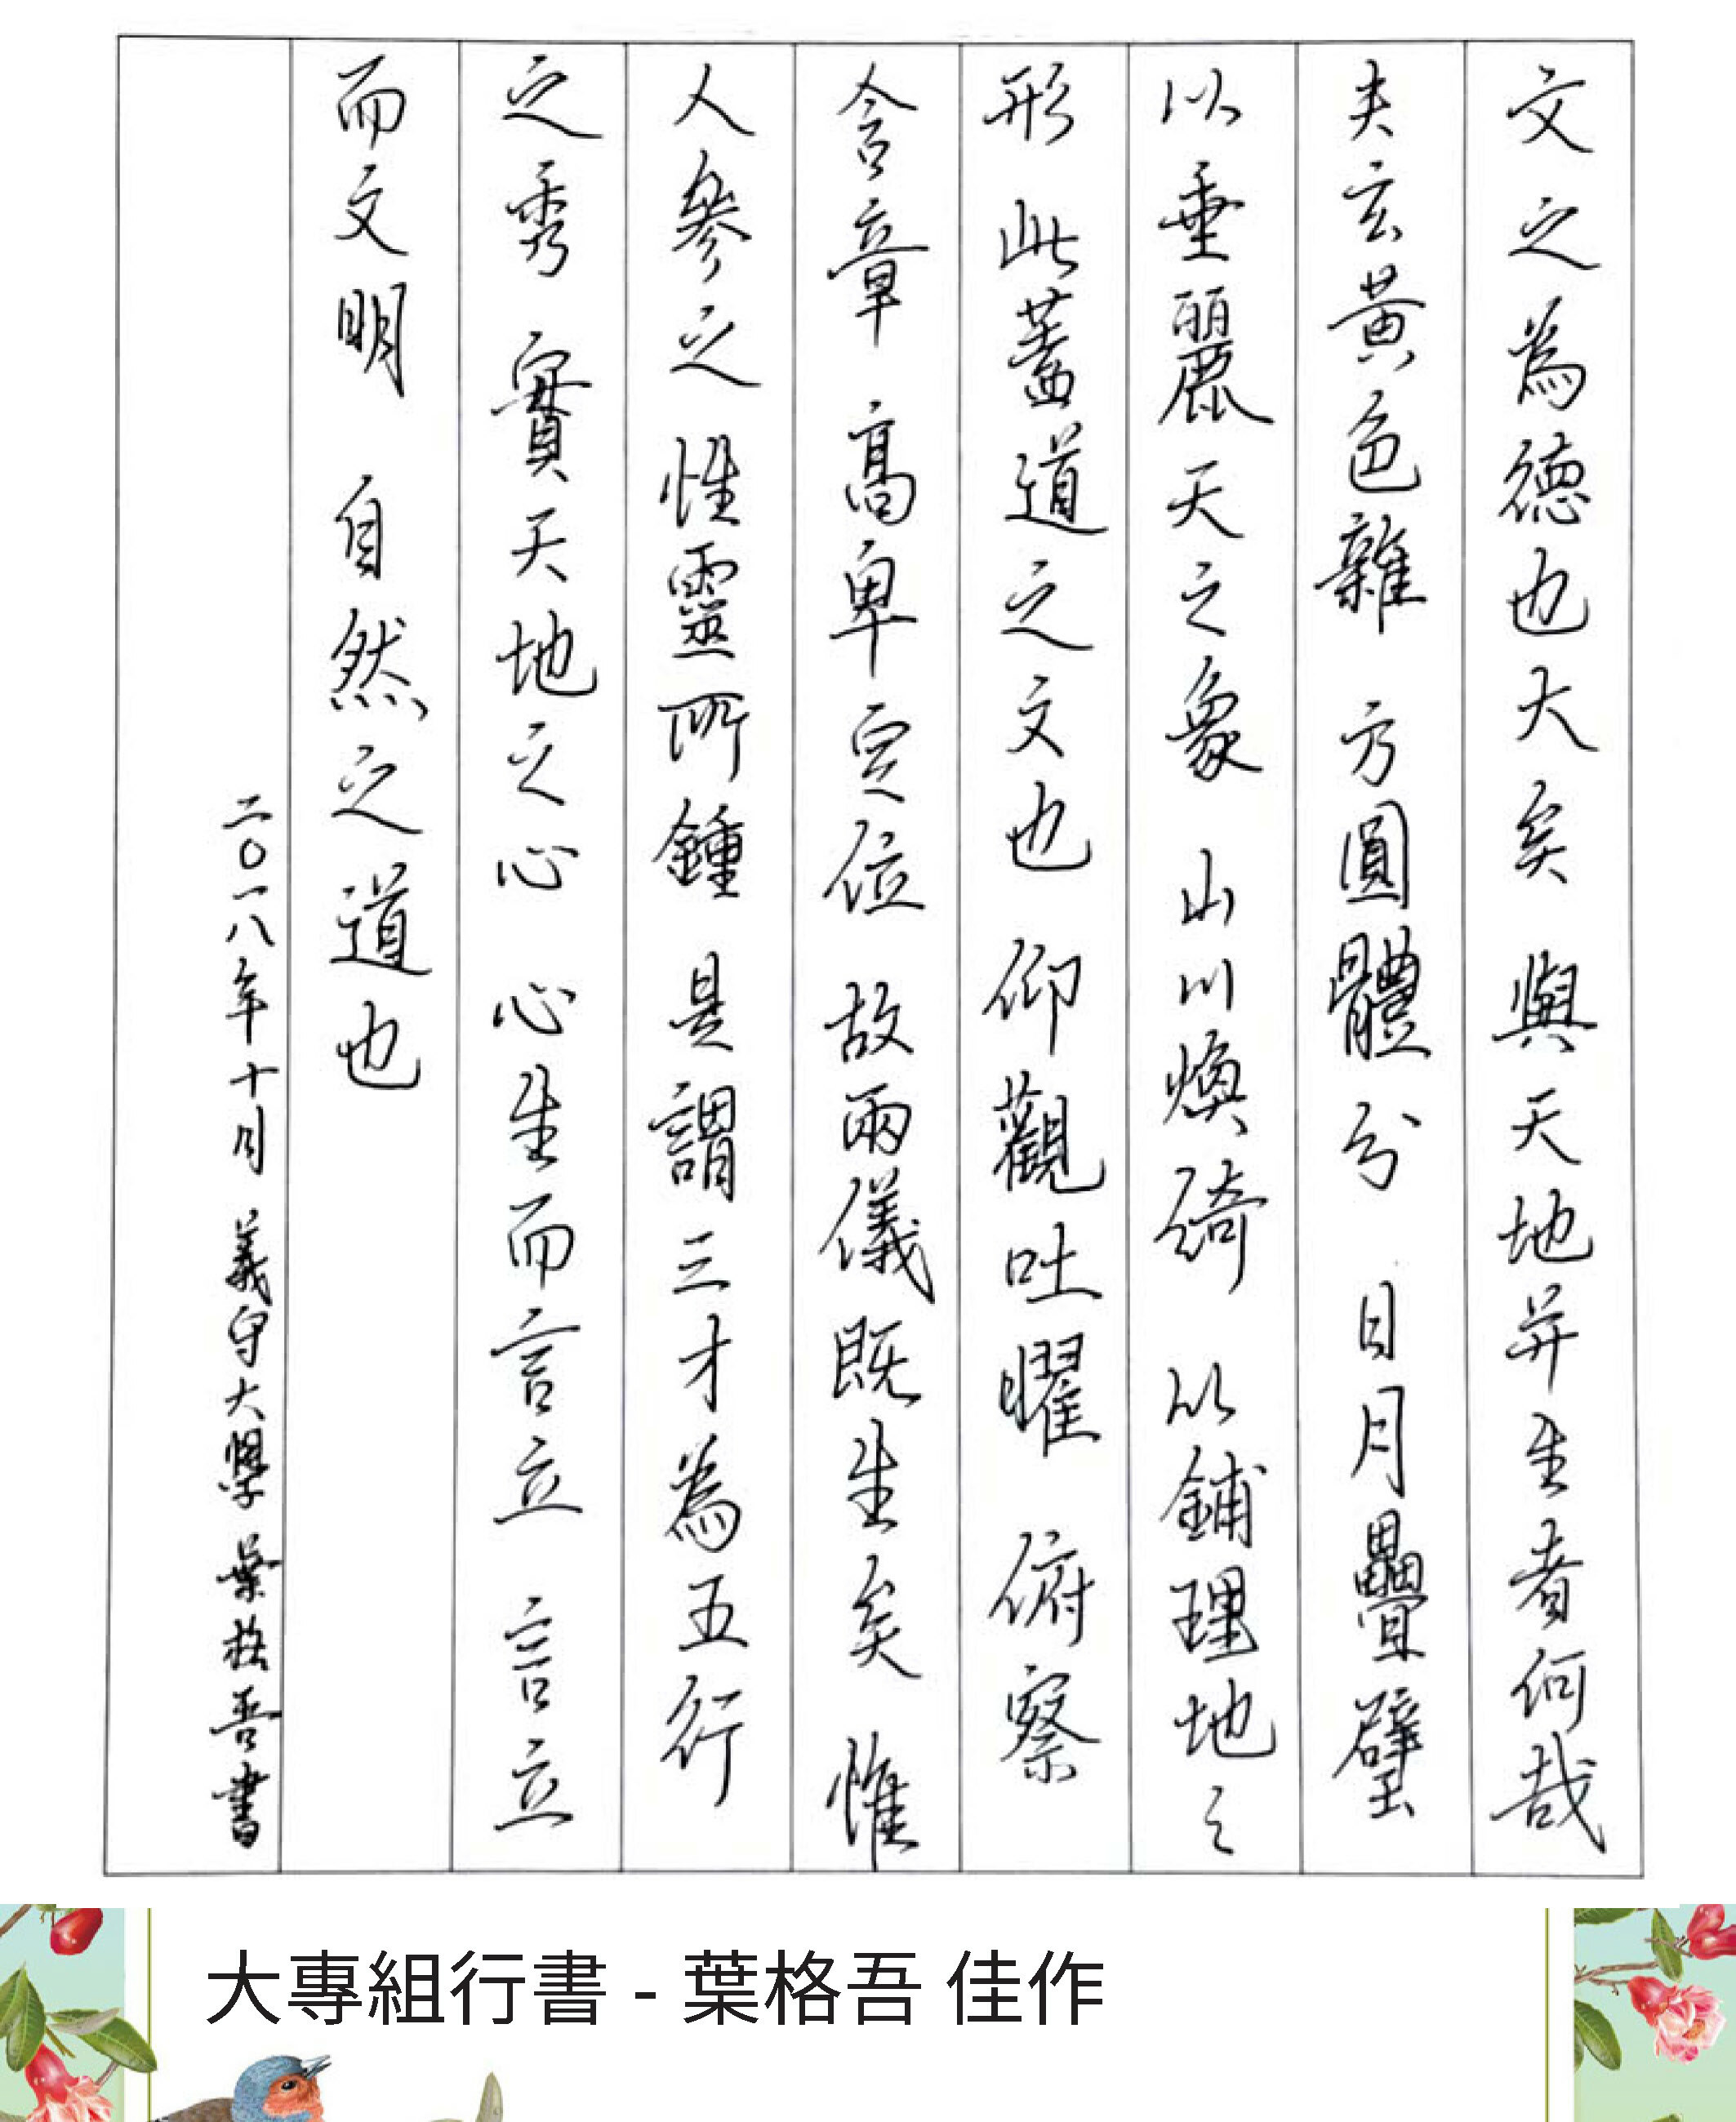 文之為德也大矣 與天地并生者何哉
夫玄黃色雜 方圓體分 日月疊璧
以垂麗天之象 山川煥綺 以鋪理地之
形 此蓋道之文也 仰觀吐曜 俯察
含章 高卑定位 故兩儀既生矣 惟
人參之 性靈所鍾 是謂三才為五行
之秀 實天地之心 心生而言立 言立
而文明 自然之道也
二〇一八年十月 義守大學 葉格吾書
大專組行書 - 葉格吾 佳作